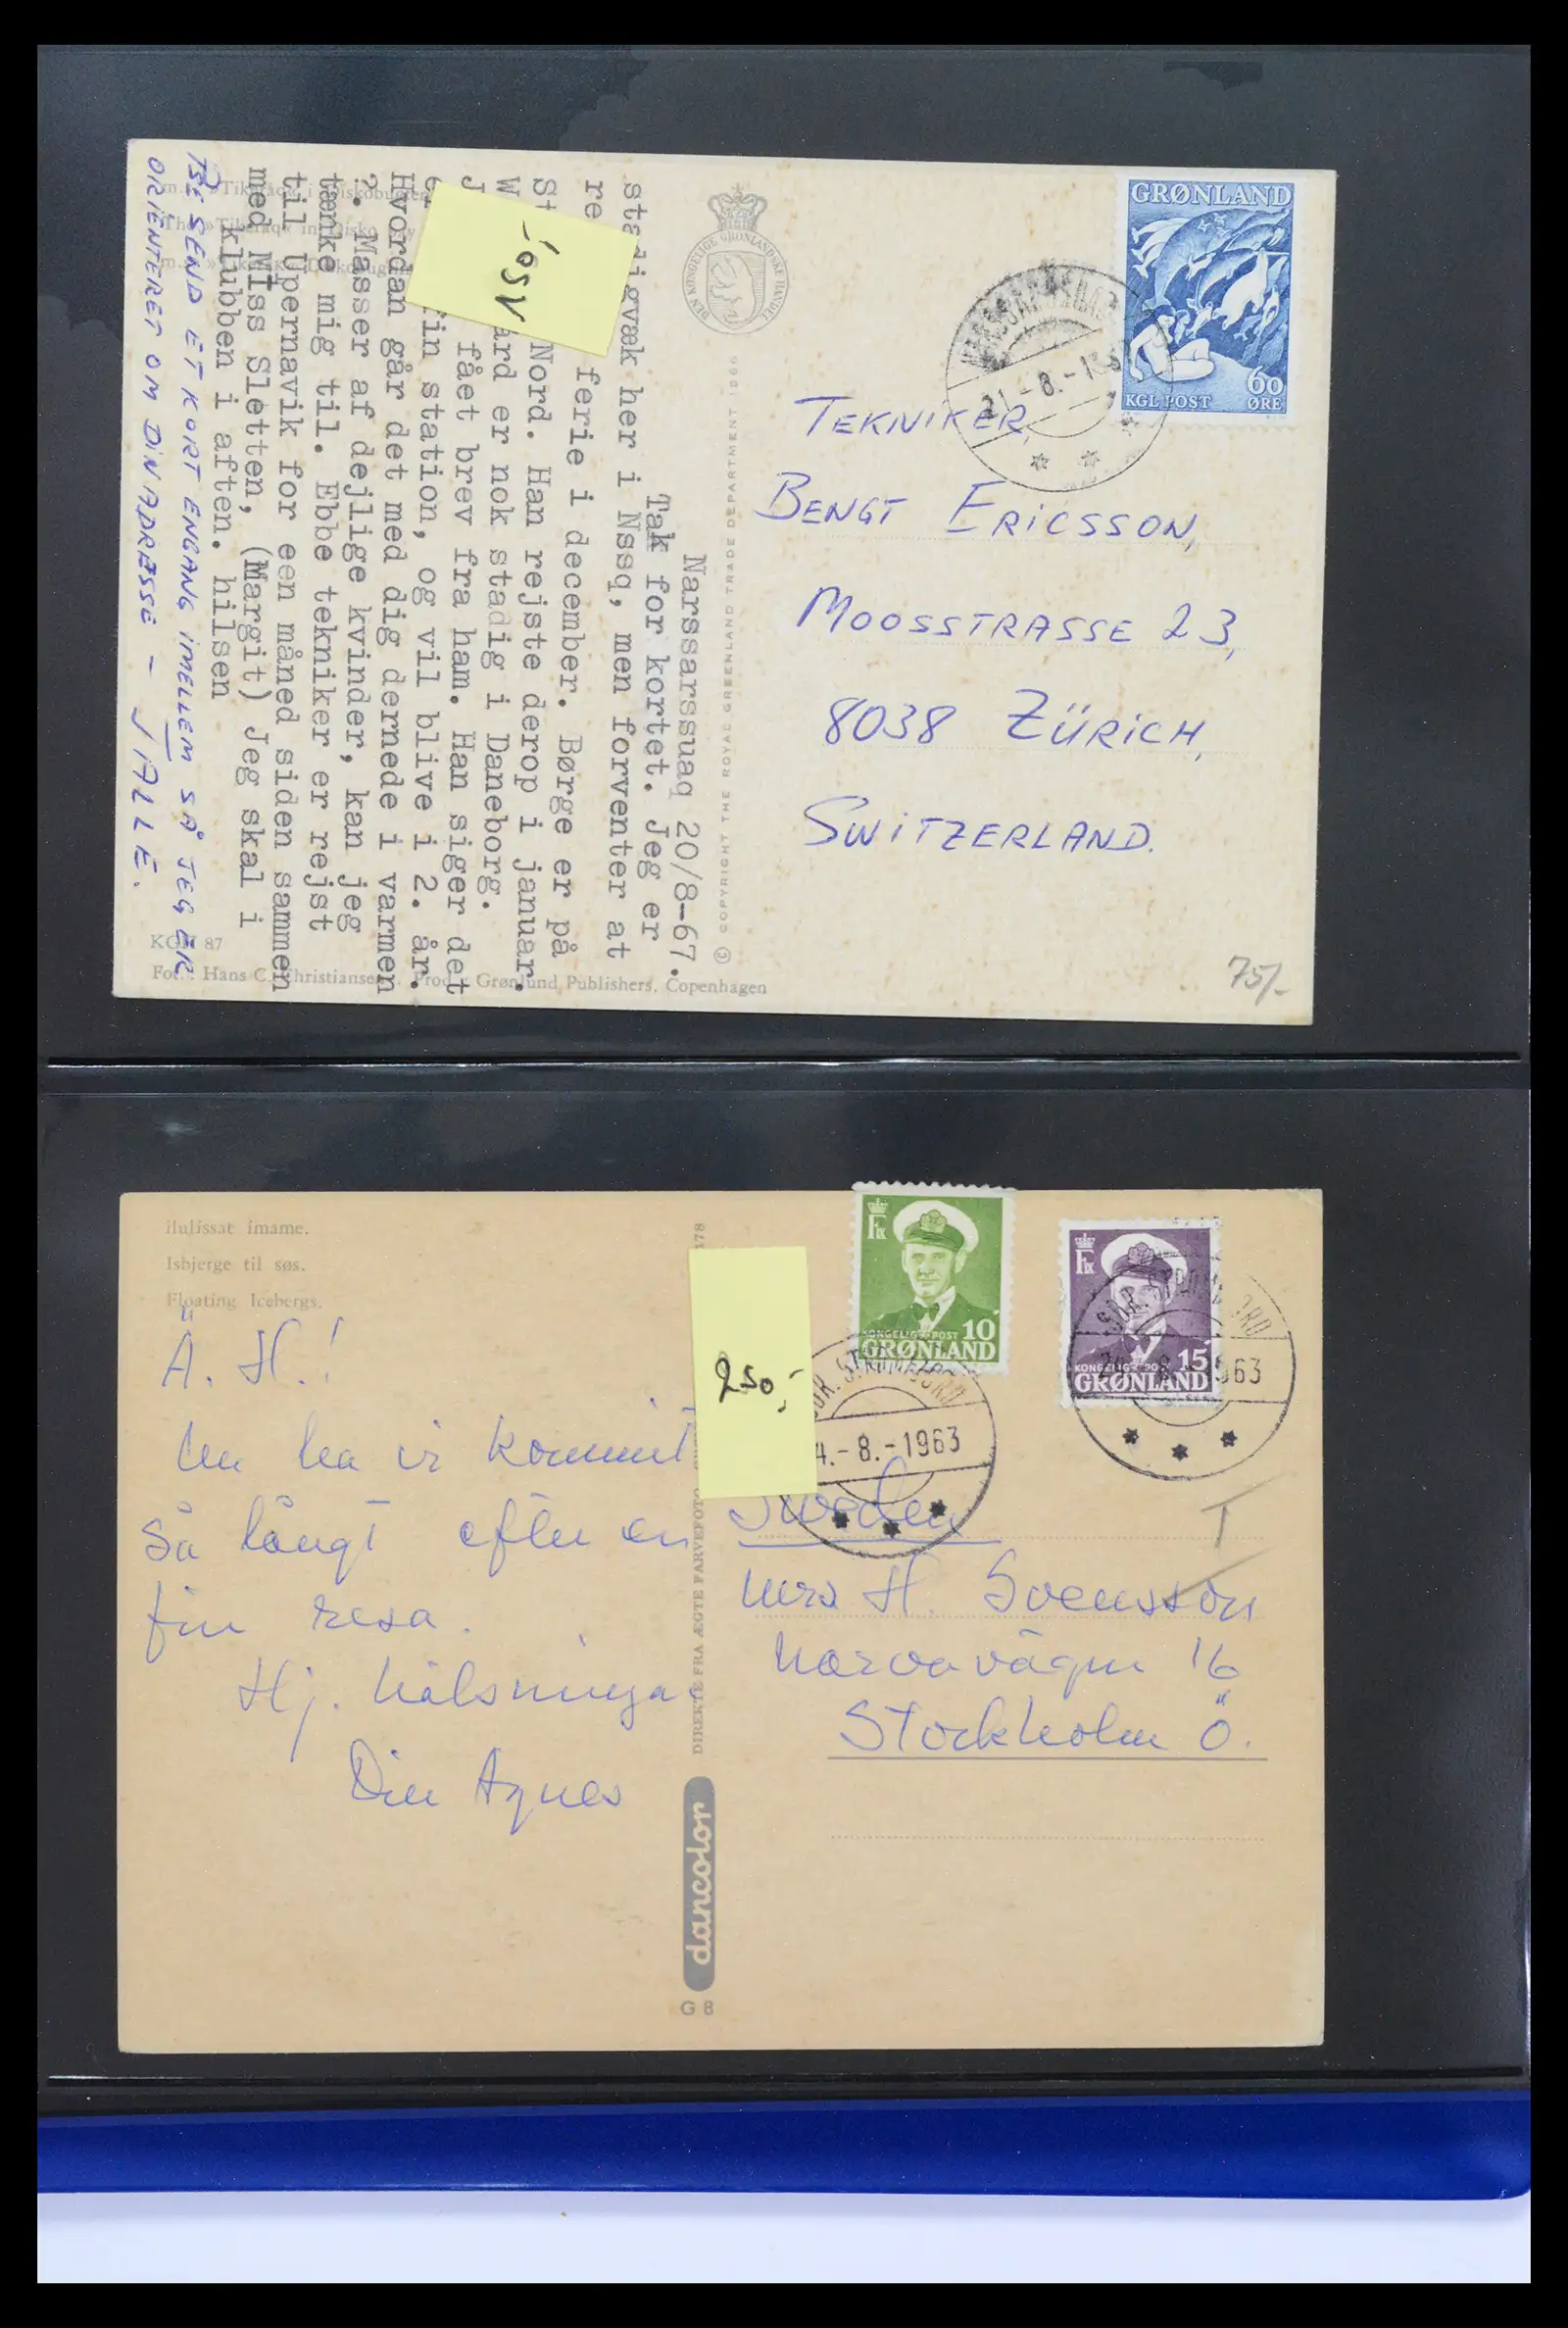 GRØNLAND
60
KGL POST ØRE
21.-8.-1
DEN KONGELIGE GRØNLANDSKE HANDEL
TEKNIKER,
BENGT ERICSSON,
MOOSSTRASSE 23,
8038 ZÜRICH,
SWITZERLAND.
75/-
© COPYRIGHT THE ROYAL GREENLAND TRADE DEPARTMENT 1966
Narssarssuaq 20/8-67.
Tak for kortet. Jeg er
stadigvæk her i Nssq, men forventer at
re ferie i december. Børge er på
St Nord. Han rejste derop i januar.
W ard er nok stadig i Daneborg.
J fået brev fra ham. Han siger det
rin station, og vil blive i 2. år.
Hvordan går det med dig dernede i varmen
?. Masser af dejlige kvinder, kan jeg
tænke mig til. Ebbe tekniker er rejst
til Upernavik for een måned siden sammen
med Miss Sletten, (Margit) Jeg skal i
klubben i aften. hilsen
SEND ET KORT ENGANG IMELLEM SÅ JEG ER
ORIENTERET OM DIN ADRESSE - JALLE.
150,-
KGH 87
Fot.: Hans C. Christiansen. Prod.: Grønlund Publishers, Copenhagen
ilulissat imame.
Isbjerge til søs.
Floating Icebergs.
Ä. H.!
Nu ha vi kommit
så långt efter en
fin resa.
Hj. hälsningar
Din Agnes
250,-
KONGELIG POST 10
GRØNLAND
SDR. STRØMFJORD
4.-8.-1963
KONGELIG POST 15
GRØNLAND
SDR. STRØMFJORD
1963
T
Sweden
Mrs H. Svensson
Narvavägen 16
Stockholm Ö.
DIREKTE FRA ÆGTE FARVEFOTO
dancolor
G 8